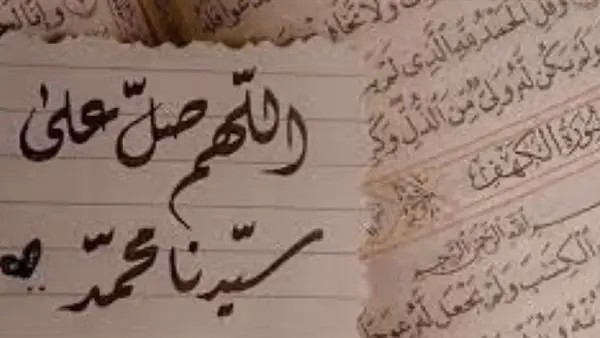 اللّهم صلّ على
سيّدنا محمّد
وقل الحمد لله الذي لم
ولم يكن له ولي من الذل وك
سورة الكهف
بسم الله الرحمن الرحيم
الكتب ولم يجعل له عوجا